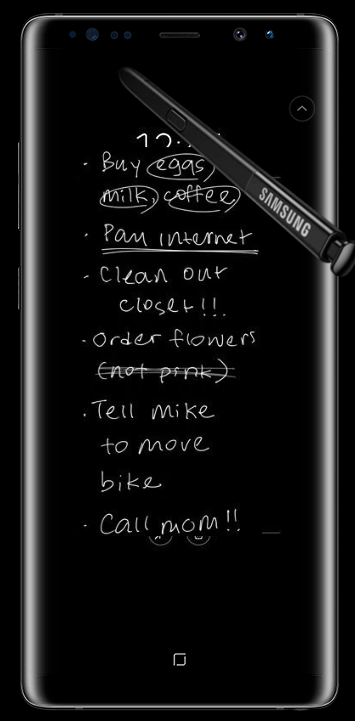 · Buy eggs,
milk, coffee
SAMSUNG
· Pay internet
· Clean out
closet!!!
· Order flowers
(not pink)
· Tell mike
to move
bike
· Call mom!!